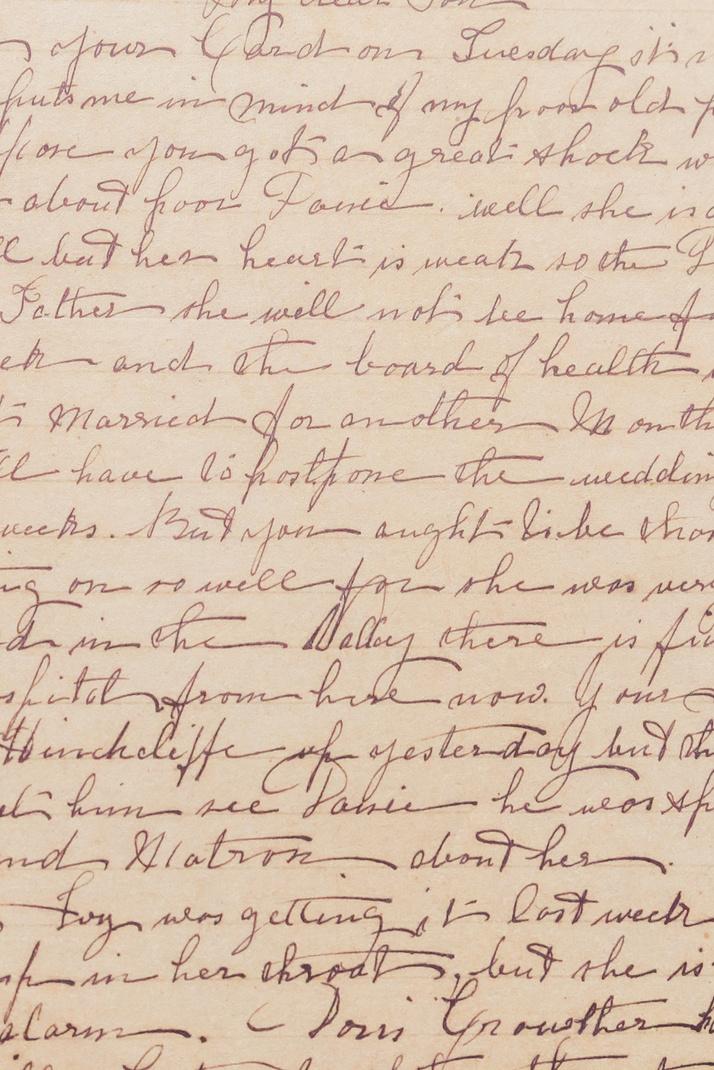 My dear Son
your Card on Tuesday it's
puts me in mind of my poor old
pose you got a great shock
about poor Janie. well she is
ll but her heart is weak so the
Father she will not be home
ek and the board of health
t married for another Month
ll have to postpone the weddin
weeks. But you aught to be than
ng on so well for she was very
d in the Valley there is
spital from here now. your
Hinchcliffe up yesterday but th
et him see Janie he was sp
nd Matron about her.
Ivy was getting it last week
up in her throat, but she is
alarm. Doris Growther